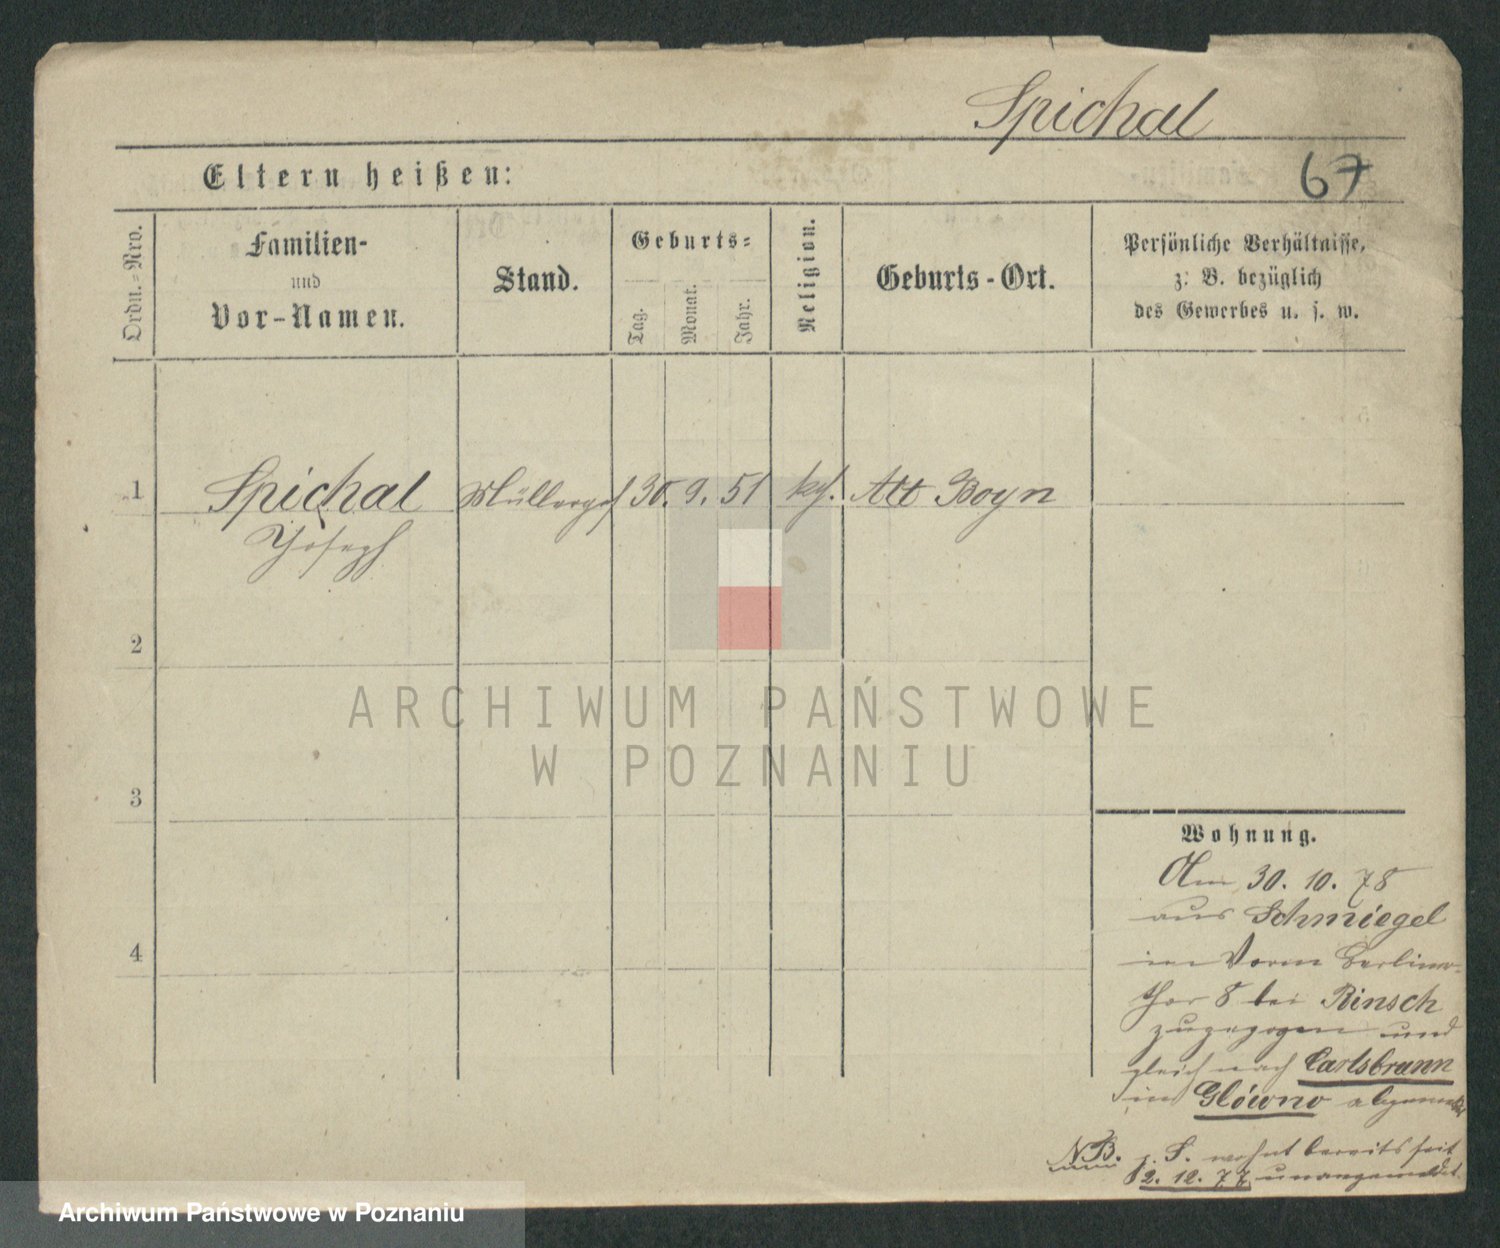 Spichal
67
Eltern heißen:
Ordn.=Nro.
Familien-
und
Vor-Namen.
Stand.
Geburts=
Tag.
Monat.
Jahr.
Religion.
Geburts-Ort.
Persönliche Verhältnisse,
z. B. bezüglich
des Gewerbes u. s. w.
1 Spichal Müllerges 30. 9. 51 kath. Alt Boyn
Joseph
2
3
4
Wohnung.
Am 30. 10. 78
aus Schmiegel
in Vorm Berliner-
thor 8 bei Rinsch
zugezogen und
gleich nach Carlsbrunn
in Glówno
NB. p. S. wohnt bereits seit
2. 12. 77 unangemeldet.
ARCHIWUM PAŃSTWOWE
W POZNANIU
Archiwum Państwowe w Poznaniu